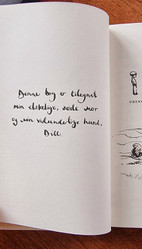 Denne bog er tilegnet
min elskelige, søde mor
og min vidunderlige hund,
Bill.